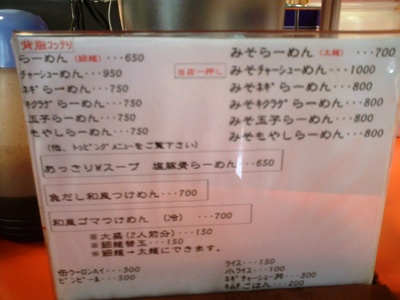 背脂コッテリ
らーめん（細麺）・・・650
チャーシューめん・・・950
ネギらーめん・・・750
キクラゲらーめん・・・750
玉子らーめん・・・750
もやしらーめん・・・750
（他、トッピングメニューをご覧下さい）
当店一押し
みそらーめん（太麺）・・・700
みそチャーシューめん・・・1000
みそネギらーめん・・・800
みそキクラゲらーめん・・・800
みそ玉子らーめん・・・800
みそもやしらーめん・・・800
あっさりWスープ 塩豚骨らーめん・・・650
魚だし和風つけめん・・・700
和風ゴマつけめん （冷）・・・700
※大盛（2人前分）・・・150
※細麺替玉・・・150
※細麺→太麺にできます。
缶ウーロンハイ・・・300
ビンビール・・・500
ライス・・・150
小ライス・・・100
ネギチャーシュー丼・・・300
キムチごはん・・・200